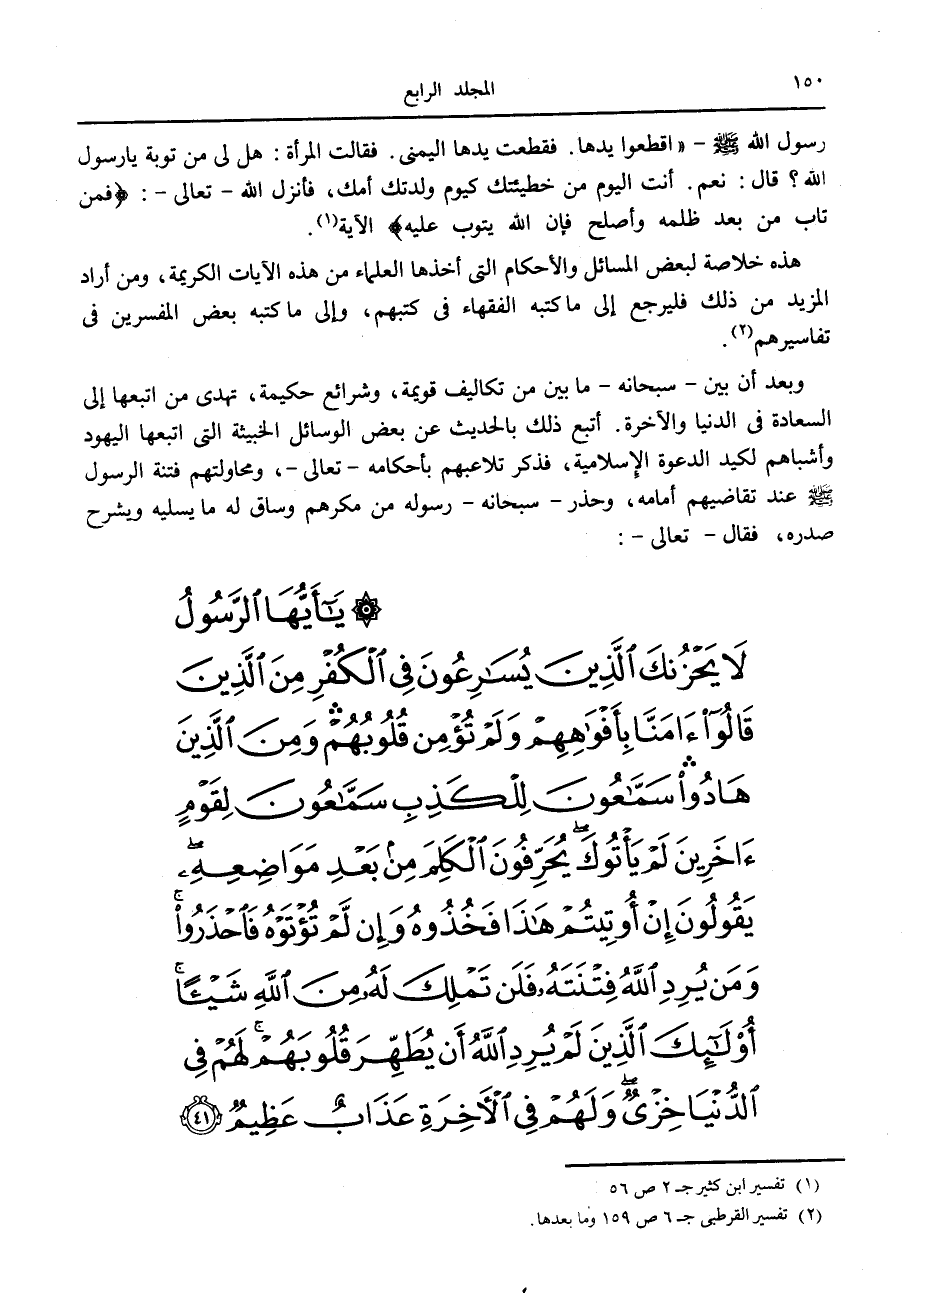 ١٥٠
المجلد الرابع
رسول الله ﷺ – « اقطعوا يدها. فقطعت يدها اليمنى. فقالت المرأة : هل لى من توبة يارسول
الله ؟ قال : نعم. أنت اليوم من خطيئتك كيوم ولدتك أمك، فأنزل الله – تعالى – : ﴿فمن
تاب من بعد ظلمه وأصلح فإن الله يتوب عليه﴾ الآية(١).
هذه خلاصة لبعض المسائل والأحكام التى أخذها العلماء من هذه الآيات الكريمة، ومن أراد
المزيد من ذلك فليرجع إلى ماكتبه الفقهاء فى كتبهم، وإلى ماكتبه بعض المفسرين فى
تفاسيرهم(٢).
وبعد أن بين – سبحانه – ما بين من تكاليف قويمة، وشرائع حكيمة، تهدى من اتبعها إلى
السعادة فى الدنيا والآخرة. أتبع ذلك بالحديث عن بعض الوسائل الخبيثة التى اتبعها اليهود
وأشباهم لكيد الدعوة الإسلامية، فذكر تلاعبهم بأحكامه –تعالى–، ومحاولتهم فتنة الرسول
ﷺ عند تقاضيهم أمامه، وحذر – سبحانه – رسوله من مكرهم وساق له مايسليه ويشرح
صدره، فقال – تعالى – :
۞ يَٰٓأَيُّهَا ٱلرَّسُولُ
لَا يَحْزُنكَ ٱلَّذِينَ يُسَٰرِعُونَ فِى ٱلْكُفْرِ مِنَ ٱلَّذِينَ
قَالُوٓا۟ ءَامَنَّا بِأَفْوَٰهِهِمْ وَلَمْ تُؤْمِن قُلُوبُهُمْ ۛ وَمِنَ ٱلَّذِينَ
هَادُوا۟ ۛ سَمَّٰعُونَ لِلْكَذِبِ سَمَّٰعُونَ لِقَوْمٍ
ءَاخَرِينَ لَمْ يَأْتُوكَ ۖ يُحَرِّفُونَ ٱلْكَلِمَ مِنۢ بَعْدِ مَوَاضِعِهِۦ ۖ
يَقُولُونَ إِنْ أُوتِيتُمْ هَٰذَا فَخُذُوهُ وَإِن لَّمْ تُؤْتَوْهُ فَٱحْذَرُوا۟ ۚ
وَمَن يُرِدِ ٱللَّهُ فِتْنَتَهُۥ فَلَن تَمْلِكَ لَهُۥ مِنَ ٱللَّهِ شَيْـًٔا ۚ
أُو۟لَٰٓئِكَ ٱلَّذِينَ لَمْ يُرِدِ ٱللَّهُ أَن يُطَهِّرَ قُلُوبَهُمْ ۚ لَهُمْ فِى
ٱلدُّنْيَا خِزْىٌ ۖ وَلَهُمْ فِى ٱلْءَاخِرَةِ عَذَابٌ عَظِيمٌ ﴿٤١﴾
(١) تفسير ابن كثير جـ ٢ ص ٥٦
(٢) تفسير القرطبى جـ ٦ ص ١٥٩ وما بعدها.